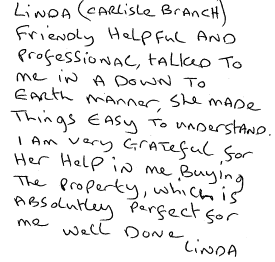 LINDA (CARLISLE BRANCH)
Friendly Helpful AND
Professional, talked to
me in A Down to
Earth manner, She made
Things Easy To understand.
I Am very Grateful for
Her Help in me Buying
The Property, which is
ABSolutley Perfect for
me Well Done
LINDA